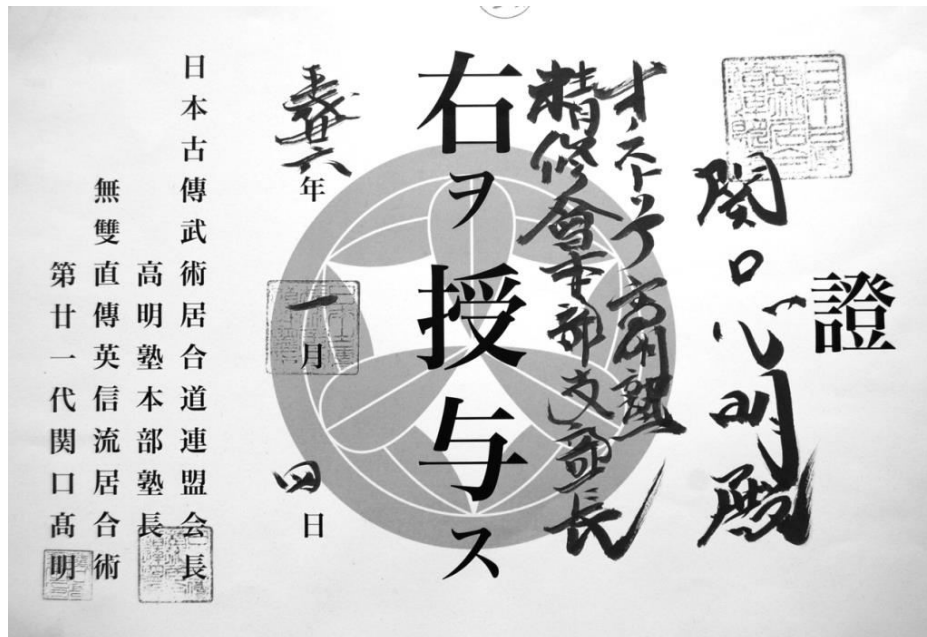 證
関口心明殿
高明塾
精修會本部支部長
右ヲ授与ス
平成廿六年一月四日
日本古傳武術居合道連盟会長
高明塾本部塾長
無雙直傳英信流居合術
第廿一代関口髙明